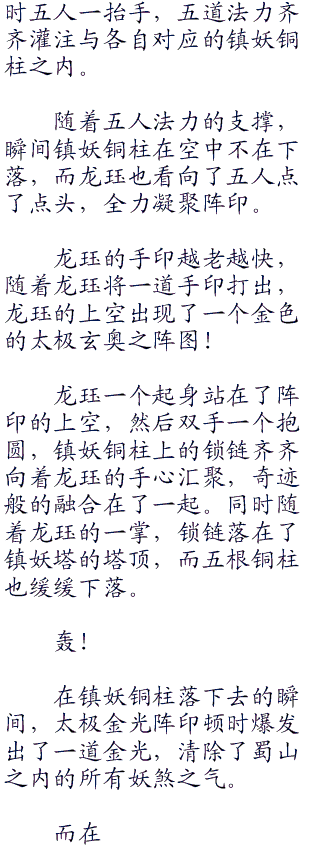 时五人一抬手，五道法力齐
齐灌注与各自对应的镇妖铜
柱之内。
随着五人法力的支撑，
瞬间镇妖铜柱在空中不在下
落，而龙珏也看向了五人点
了点头，全力凝聚阵印。
龙珏的手印越老越快，
随着龙珏将一道手印打出，
龙珏的上空出现了一个金色
的太极玄奥之阵图！
龙珏一个起身站在了阵
印的上空，然后双手一个抱
圆，镇妖铜柱上的锁链齐齐
向着龙珏的手心汇聚，奇迹
般的融合在了一起。同时随
着龙珏的一掌，锁链落在了
镇妖塔的塔顶，而五根铜柱
也缓缓下落。
轰！
在镇妖铜柱落下去的瞬
间，太极金光阵印顿时爆发
出了一道金光，清除了蜀山
之内的所有妖煞之气。
而在